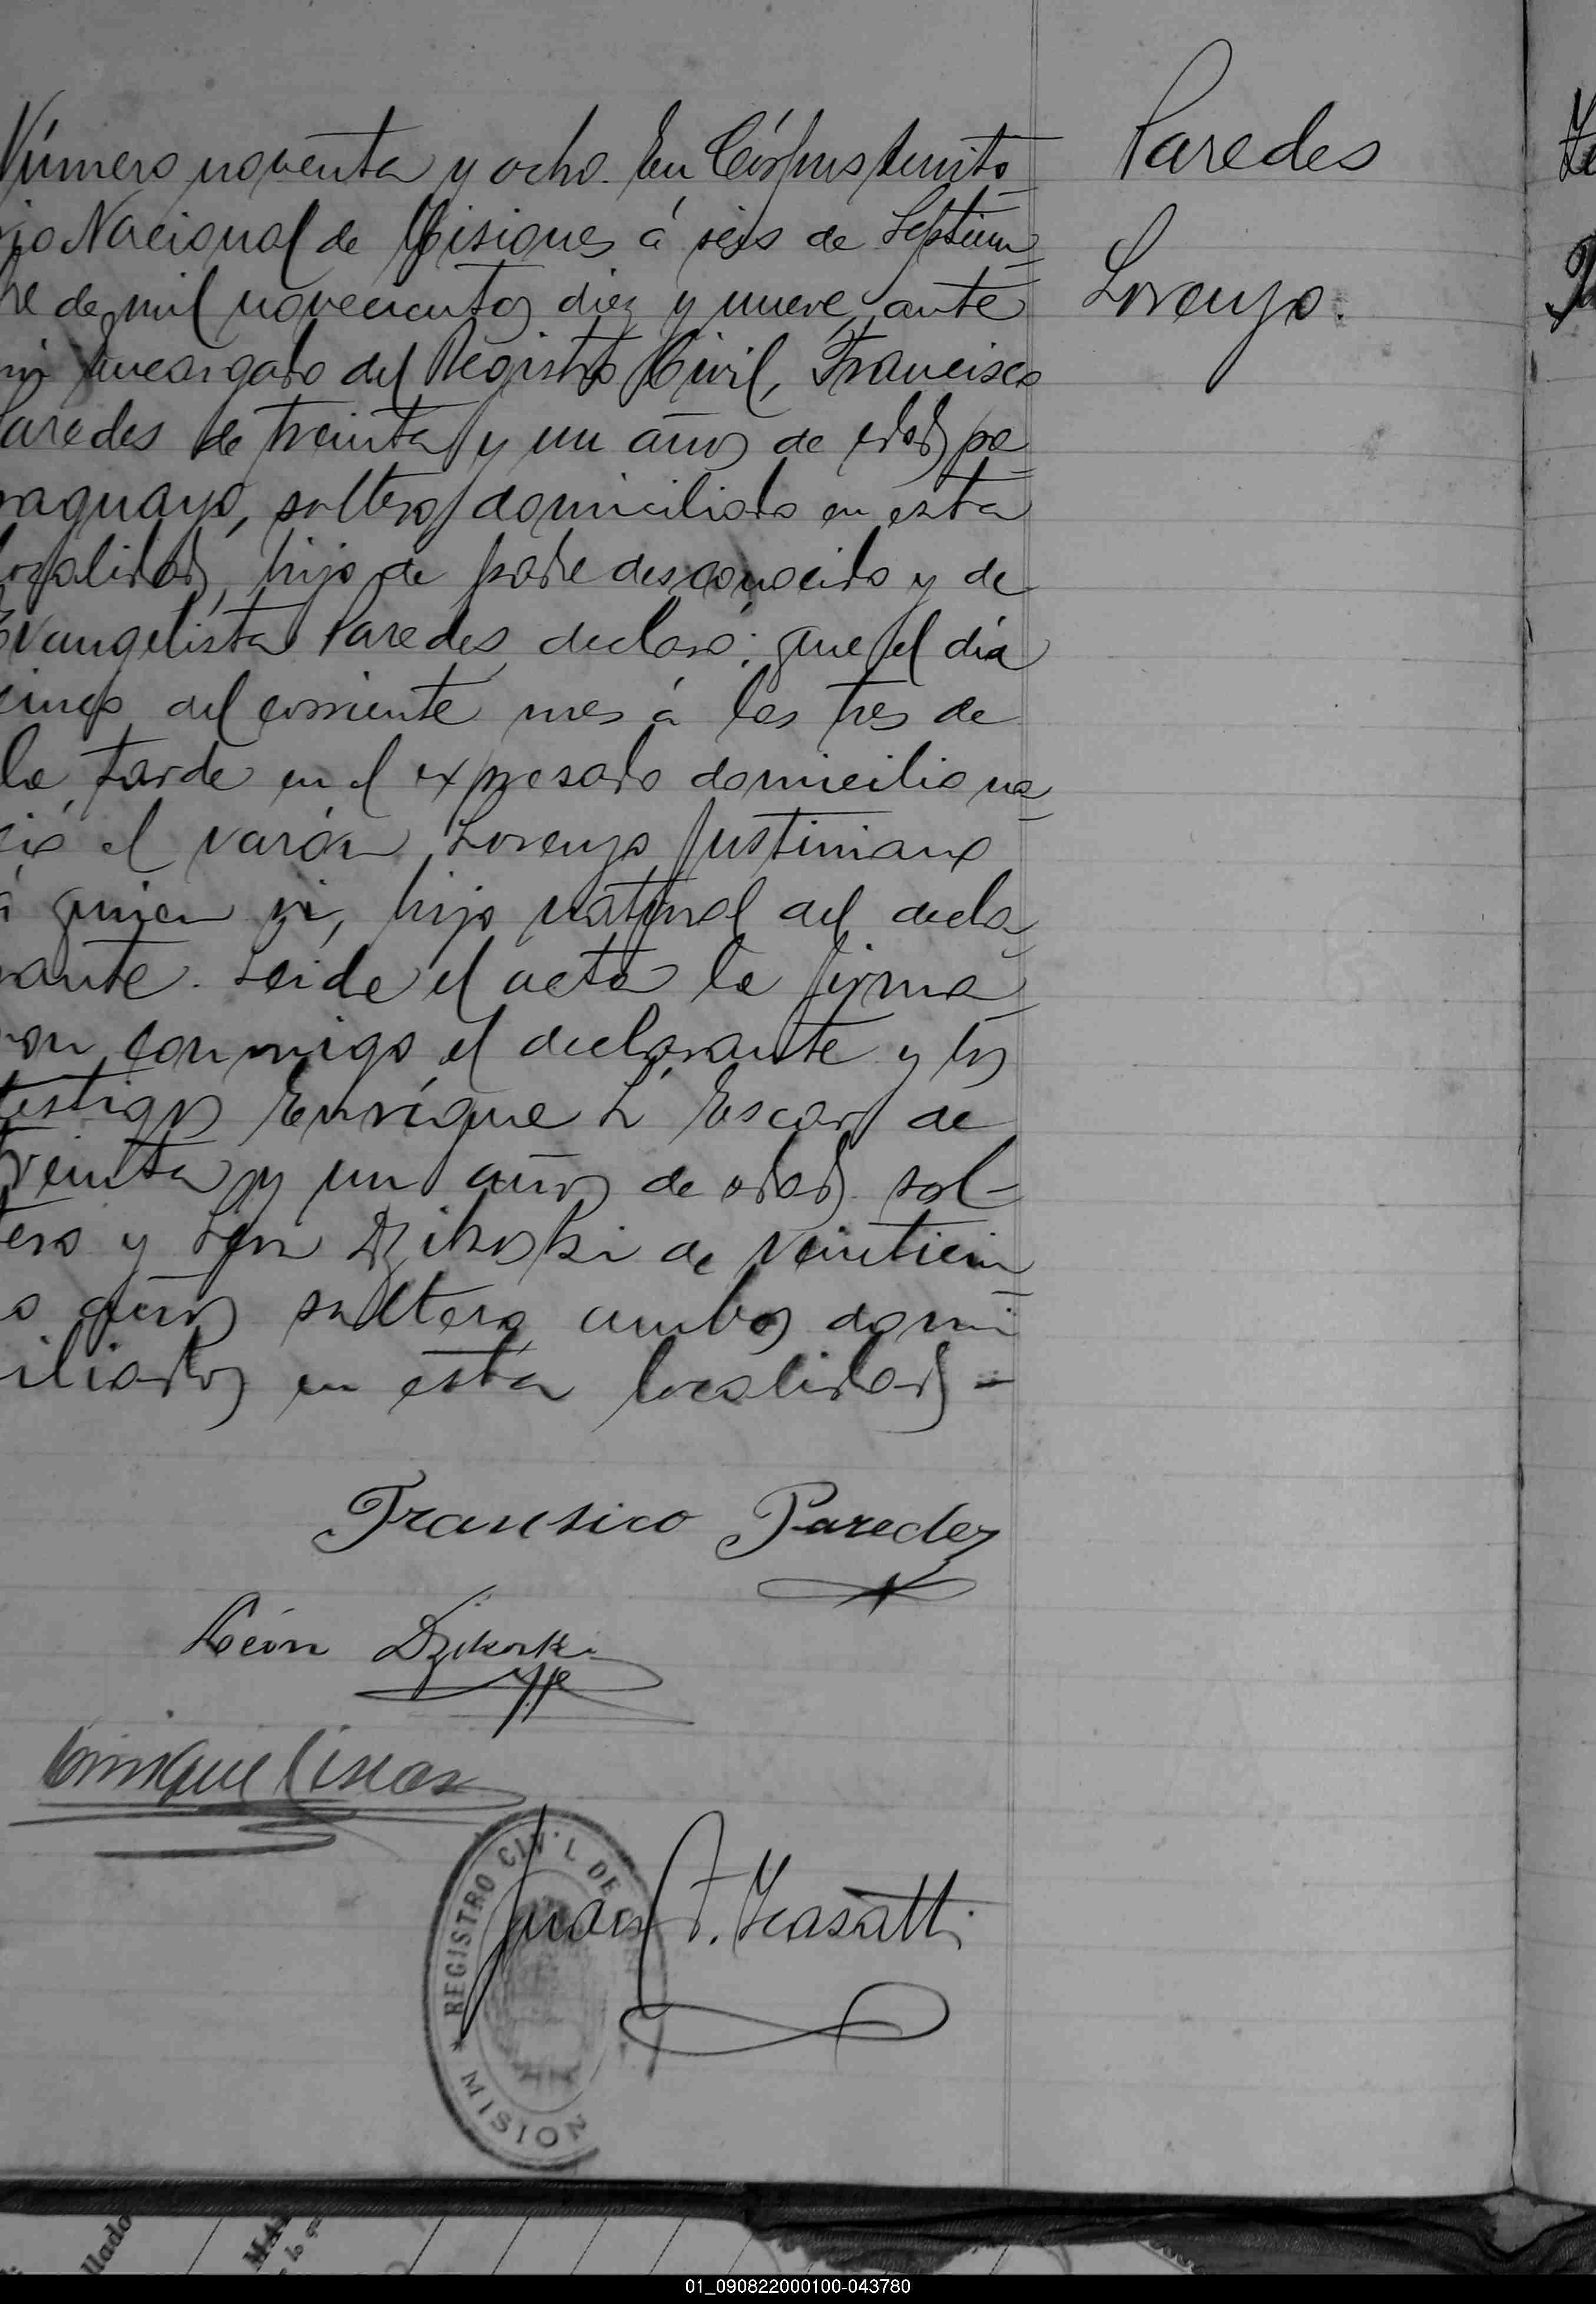 Paredes
Lorenzo.
Número noventa y ocho. En Córpus territo
rio Nacional de Misiones á seis de Septiem
bre de mil novecientos diez y nueve, ante
mi Encargado del Registro Civil, Francisco
Paredes de treinta y un años de edad, pa
raguayo, soltero, domiciliado en esta
localidad, hijo de padre desconocido y de
Evangelista Paredes, declaró: que el día
cinco del corriente mes á las tres de
la tarde en el expresado domicilio na
ció el varón Lorenzo Justiniano
á quien vi, hijo natural del decla
rante. Leída el acta la firma
ron conmigo el declarante y los
testigos Enrique L. Escar de
treinta y un años de edad sol-
tero y León Dzikoski de veinticin
o años soltero, ambos domi
iliados en esta localidad =
Fransico Paredez
León Dzikoski
Enrique Escar
Juan F.
REGISTRO CIVIL DE
MISION
llado
MA
lo qu
01_090822000100-043780